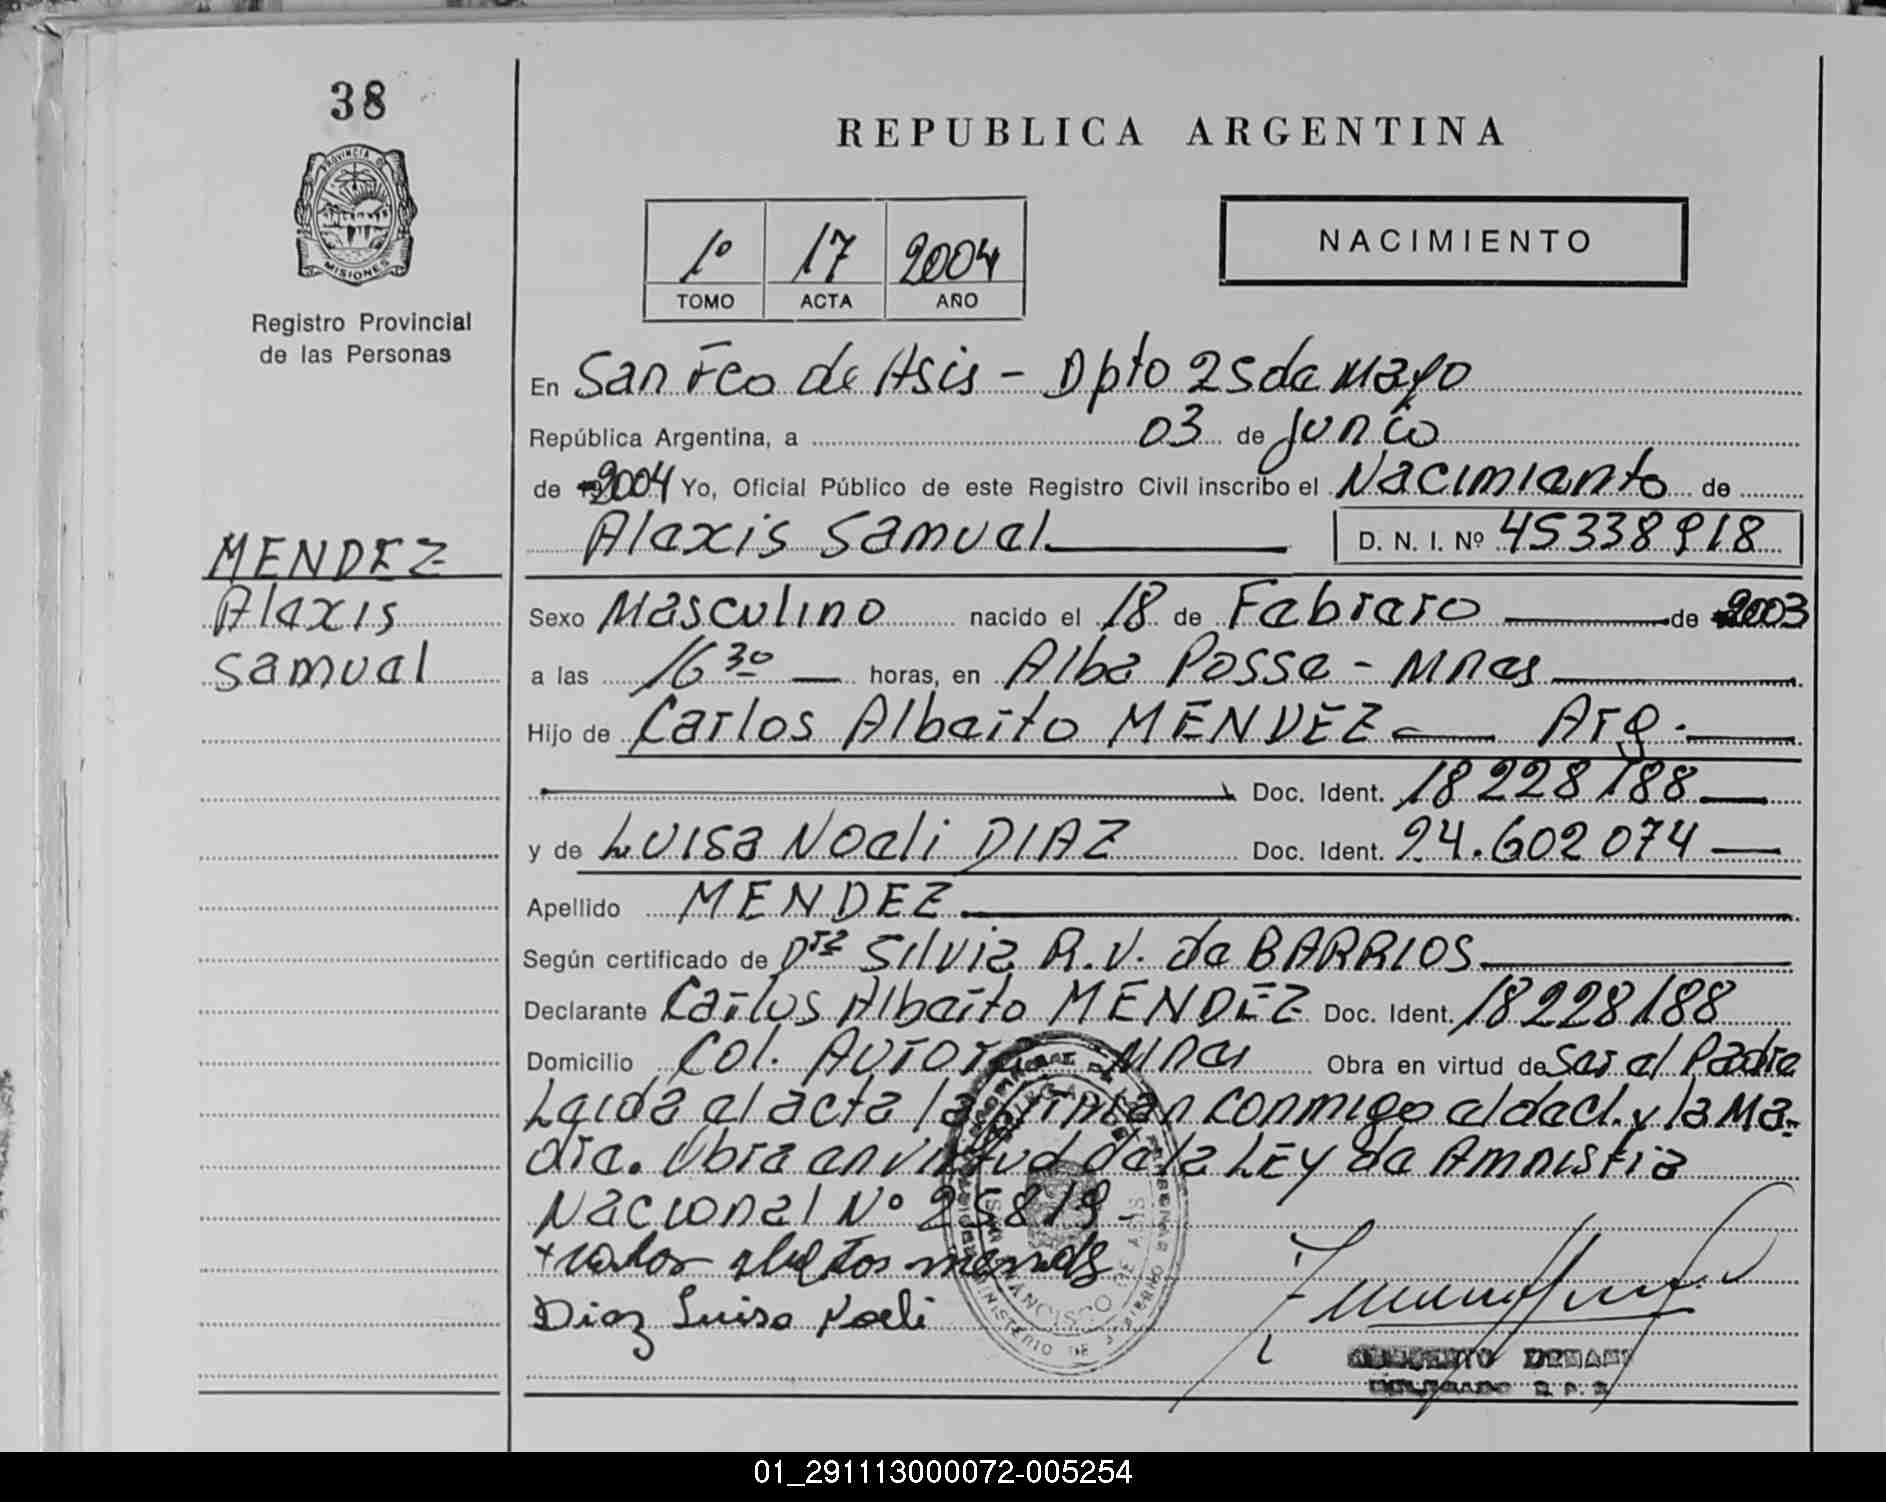 38
PROVINCIA DE
MISIONES
Registro Provincial
de las Personas
REPUBLICA ARGENTINA
1º 17 2004
TOMO ACTA AÑO
NACIMIENTO
En San Fco de Asis - Dpto 25 de Mayo
República Argentina, a 03 de Junio
de 2004 Yo, Oficial Público de este Registro Civil inscribo el Nacimiento de
Alexis Samuel D. N. I. Nº 45338918
MENDEZ
Alexis
Samuel
Sexo Masculino nacido el 18 de Febrero de 2003
a las 16 30 horas, en Alba Posse - Mnes
Hijo de Carlos Alberto MENDEZ Arg.
Doc. Ident. 18228188
y de Luisa Noeli DIAZ Doc. Ident. 24.602074
Apellido MENDEZ
Según certificado de Dra Silvia R.V. de BARRIOS
Declarante Carlos Alberto MENDEZ Doc. Ident. 18228188
Domicilio Col. Aurora Mnes Obra en virtud de Ser el Padre
Leida el acta la firman conmigo el decl. y la Ma-
dre. Obra en virtud de la LEY de Amnistia
Nacional Nº 25819.
Diaz Luisa Noeli
SAN FRANCISCO DE ASIS
MINISTERIO DE GOBIERNO
01_291113000072-005254